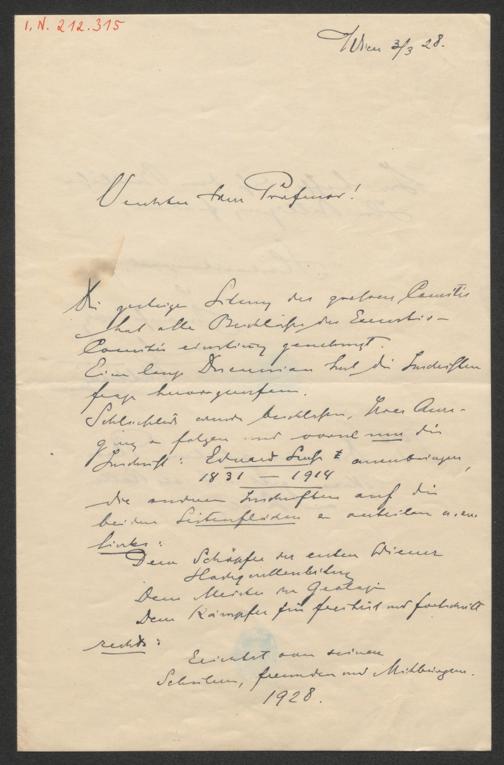 I.N. 212.315
Wien 3/3 28.
Verehrter Herr Professor!
Die gestrige Sitzung des großen Comités
hat alle Beschlüsse des Executiv-
Comités einstimmig genehmigt.
Eine lange Discussion hat die Inschriften
frage hervorgerufen.
Schließlich wurde beschlossen, Ihrer Anre-
gung zu folgen und vorne nur die
Inschrift: Eduard Sueß anzubringen,
1831 – 1914
die anderen Inschriften auf die
beiden Seitenflächen zu verteilen u. zw.
links:
Dem Schöpfer der ersten Wiener
Hochquellenleitung
Dem Meister der Geologie
Dem Kämpfer für Freiheit und Fortschritt
rechts:
Errichtet von seinen
Schülern, Freunden und Mitbürgern.
1928.